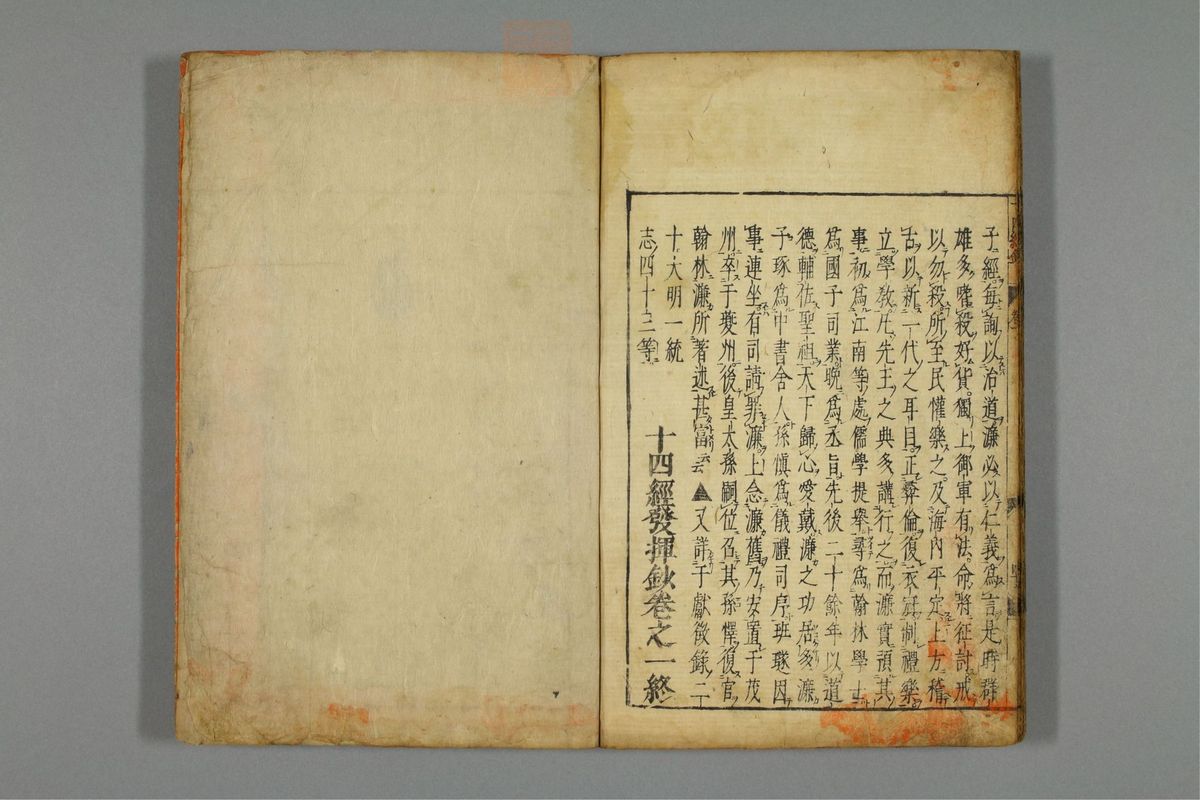 子經每詢以治道濂必以仁義爲言是時群
雄多嗜殺好貨獨上御軍有法命將征討戒
以勿殺所至民懽樂之及海內平定上方稽
古以新一代之耳目正彜倫復衣冠制禮樂
立學敎凡先王之典多講行之而濂實預其
事初爲江南等處儒學提舉尋爲翰林學士
爲國子司業晩爲丞旨先後二十餘年以道
德輔佐聖祖天下歸心愛戴濂之功居多濂
子琢爲中書舍人孫愼爲儀禮司序班璲因
事連坐有司請罪濂上念濂舊乃安置于茂
州卒于夔州後皇太孫嗣位召其孫懌復官
翰林濂所著述甚富云云▲又詳于獻徵錄二
十大明一統
志四十二等
十四經發揮鈔卷之一終